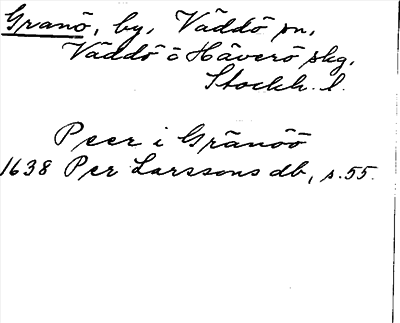 Granö, by, Väddö sn,
Väddö o Häverö skg,
Stockh. l.
Peer i Granöö
1638 Per Larssons db, s. 55.